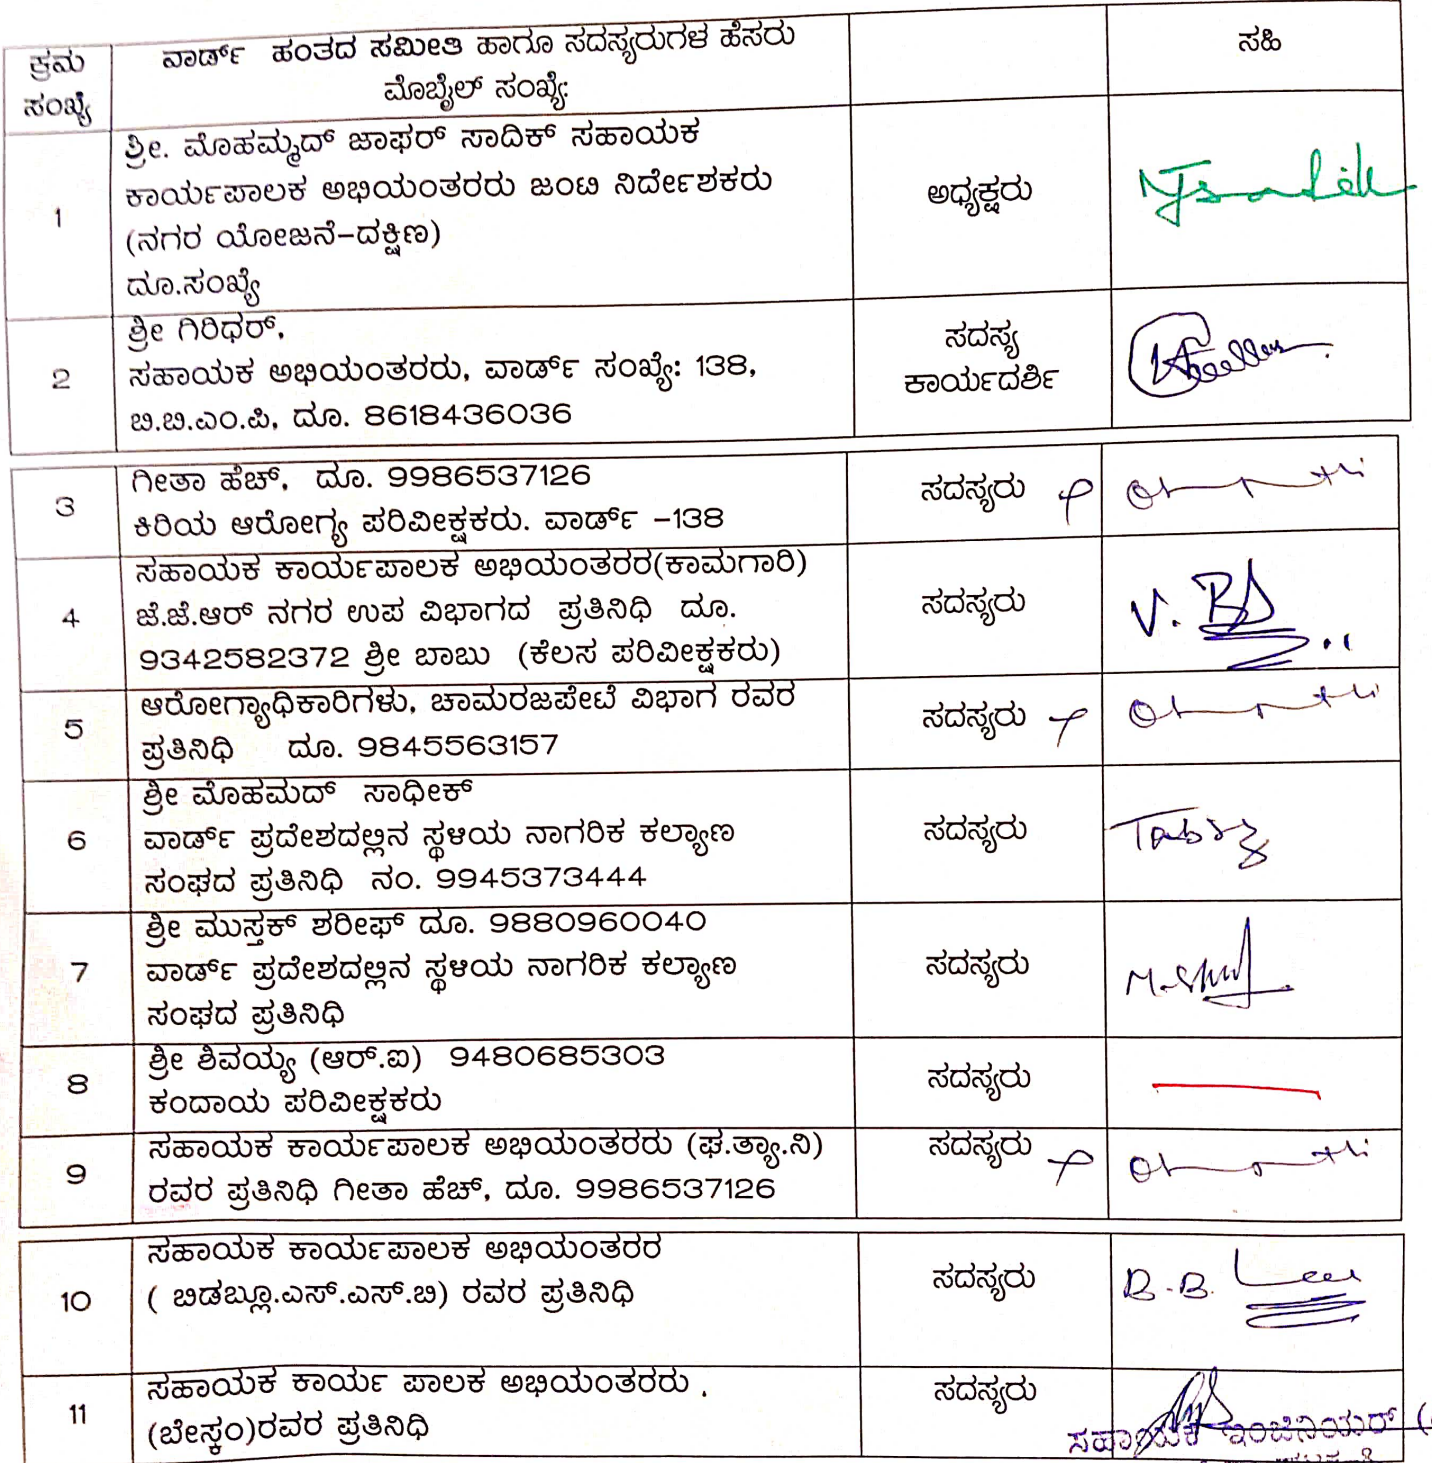 ಕ್ರಮ ಸಂಖ್ಯೆ
ವಾರ್ಡ್ ಹಂತದ ಸಮೀತಿ ಹಾಗೂ ಸದಸ್ಯರುಗಳ ಹೆಸರು
ಮೊಬೈಲ್ ಸಂಖ್ಯೆ:
ಸಹಿ
1
ಶ್ರೀ. ಮೊಹಮ್ಮದ್ ಜಾಫರ್ ಸಾದಿಕ್ ಸಹಾಯಕ
ಕಾರ್ಯಪಾಲಕ ಅಭಿಯಂತರರು ಜಂಟಿ ನಿರ್ದೇಶಕರು
(ನಗರ ಯೋಜನೆ-ದಕ್ಷಿಣ)
ದೂ.ಸಂಖ್ಯೆ
ಅಧ್ಯಕ್ಷರು
2
ಶ್ರೀ ಗಿರಿಧರ್,
ಸಹಾಯಕ ಅಭಿಯಂತರರು, ವಾರ್ಡ್ ಸಂಖ್ಯೆ: 138,
ಬಿ.ಬಿ.ಎಂ.ಪಿ, ದೂ. 8618436036
ಸದಸ್ಯ
ಕಾರ್ಯದರ್ಶಿ
3
ಗೀತಾ ಹೆಚ್, ದೂ. 9986537126
ಕಿರಿಯ ಆರೋಗ್ಯ ಪರಿವೀಕ್ಷಕರು. ವಾರ್ಡ್ -138
ಸದಸ್ಯರು
4
ಸಹಾಯಕ ಕಾರ್ಯಪಾಲಕ ಅಭಿಯಂತರರ(ಕಾಮಗಾರಿ)
ಜೆ.ಜೆ.ಆರ್ ನಗರ ಉಪ ವಿಭಾಗದ ಪ್ರತಿನಿಧಿ ದೂ.
9342582372 ಶ್ರೀ ಬಾಬು (ಕೆಲಸ ಪರಿವೀಕ್ಷಕರು)
ಸದಸ್ಯರು
5
ಆರೋಗ್ಯಾಧಿಕಾರಿಗಳು, ಚಾಮರಜಪೇಟೆ ವಿಭಾಗ ರವರ
ಪ್ರತಿನಿಧಿ ದೂ. 9845563157
ಸದಸ್ಯರು
6
ಶ್ರೀ ಮೊಹಮದ್ ಸಾಧೀಕ್
ವಾರ್ಡ್ ಪ್ರದೇಶದಲ್ಲಿನ ಸ್ಥಳಿಯ ನಾಗರಿಕ ಕಲ್ಯಾಣ
ಸಂಘದ ಪ್ರತಿನಿಧಿ ನಂ. 9945373444
ಸದಸ್ಯರು
7
ಶ್ರೀ ಮುಸ್ತಕ್ ಶರೀಫ್ ದೂ. 9880960040
ವಾರ್ಡ್ ಪ್ರದೇಶದಲ್ಲಿನ ಸ್ಥಳಿಯ ನಾಗರಿಕ ಕಲ್ಯಾಣ
ಸಂಘದ ಪ್ರತಿನಿಧಿ
ಸದಸ್ಯರು
8
ಶ್ರೀ ಶಿವಯ್ಯ (ಆರ್.ಐ) 9480685303
ಕಂದಾಯ ಪರಿವೀಕ್ಷಕರು
ಸದಸ್ಯರು
9
ಸಹಾಯಕ ಕಾರ್ಯಪಾಲಕ ಅಭಿಯಂತರರು (ಘ.ತ್ಯಾ.ನಿ)
ರವರ ಪ್ರತಿನಿಧಿ ಗೀತಾ ಹೆಚ್, ದೂ. 9986537126
ಸದಸ್ಯರು
10
ಸಹಾಯಕ ಕಾರ್ಯಪಾಲಕ ಅಭಿಯಂತರರ
( ಬಿಡಬ್ಲೂ.ಎಸ್.ಎಸ್.ಬಿ) ರವರ ಪ್ರತಿನಿಧಿ
ಸದಸ್ಯರು
B.B.
11
ಸಹಾಯಕ ಕಾರ್ಯ ಪಾಲಕ ಅಭಿಯಂತರರು ,
(ಬೇಸ್ಕಂ)ರವರ ಪ್ರತಿನಿಧಿ
ಸದಸ್ಯರು
ಸಹಾಯಕ ಇಂಜಿನಿಯರ್ (